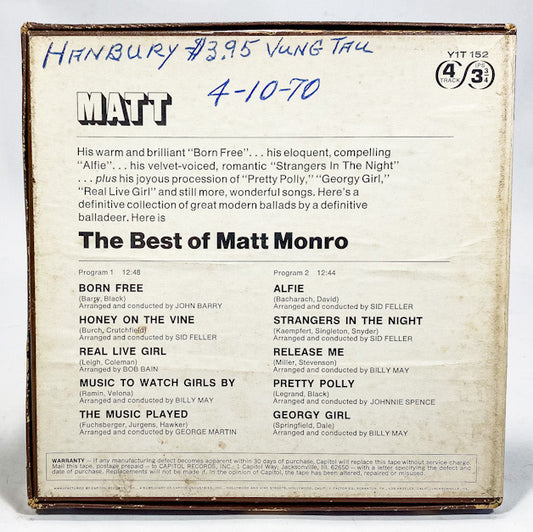 HANBURY $3.95 VUNG TAU
4-10-70
Y1T 152
4 TRACK
IPS 3 3/4
MATT
His warm and brilliant "Born Free"... his eloquent, compelling
"Alfie"... his velvet-voiced, romantic "Strangers In The Night"
... plus his joyous procession of "Pretty Polly," "Georgy Girl,"
"Real Live Girl" and still more, wonderful songs. Here's a
definitive collection of great modern ballads by a definitive
balladeer. Here is
The Best of Matt Monro
Program 1 12:48
BORN FREE
(Barry, Black)
Arranged and conducted by JOHN BARRY
HONEY ON THE VINE
(Burch, Crutchfield)
Arranged and conducted by SID FELLER
REAL LIVE GIRL
(Leigh, Coleman)
Arranged by BOB BAIN
MUSIC TO WATCH GIRLS BY
(Ramin, Velona)
Arranged and conducted by BILLY MAY
THE MUSIC PLAYED
(Fuchsberger, Jurgens, Hawker)
Arranged and conducted by GEORGE MARTIN
Program 2 12:44
ALFIE
(Bacharach, David)
Arranged and conducted by SID FELLER
STRANGERS IN THE NIGHT
(Kaempfert, Singleton, Snyder)
Arranged and conducted by SID FELLER
RELEASE ME
(Miller, Stevenson)
Arranged and conducted by BILLY MAY
PRETTY POLLY
(Legrand, Black)
Arranged and conducted by JOHNNIE SPENCE
GEORGY GIRL
(Springfield, Dale)
Arranged and conducted by BILLY MAY
WARRANTY — If any manufacturing defect becomes apparent within 30 days of purchase, Capitol will replace this tape without service charge.
Mail this tape, postage prepaid – to CAPITOL RECORDS, INC., 1 Capitol Way, Jacksonville, Ill. 62650 – with a letter specifying the defect and
date of purchase. Replacements will not be made if, in the opinion of Capitol, the tape has been altered, repaired or misused.